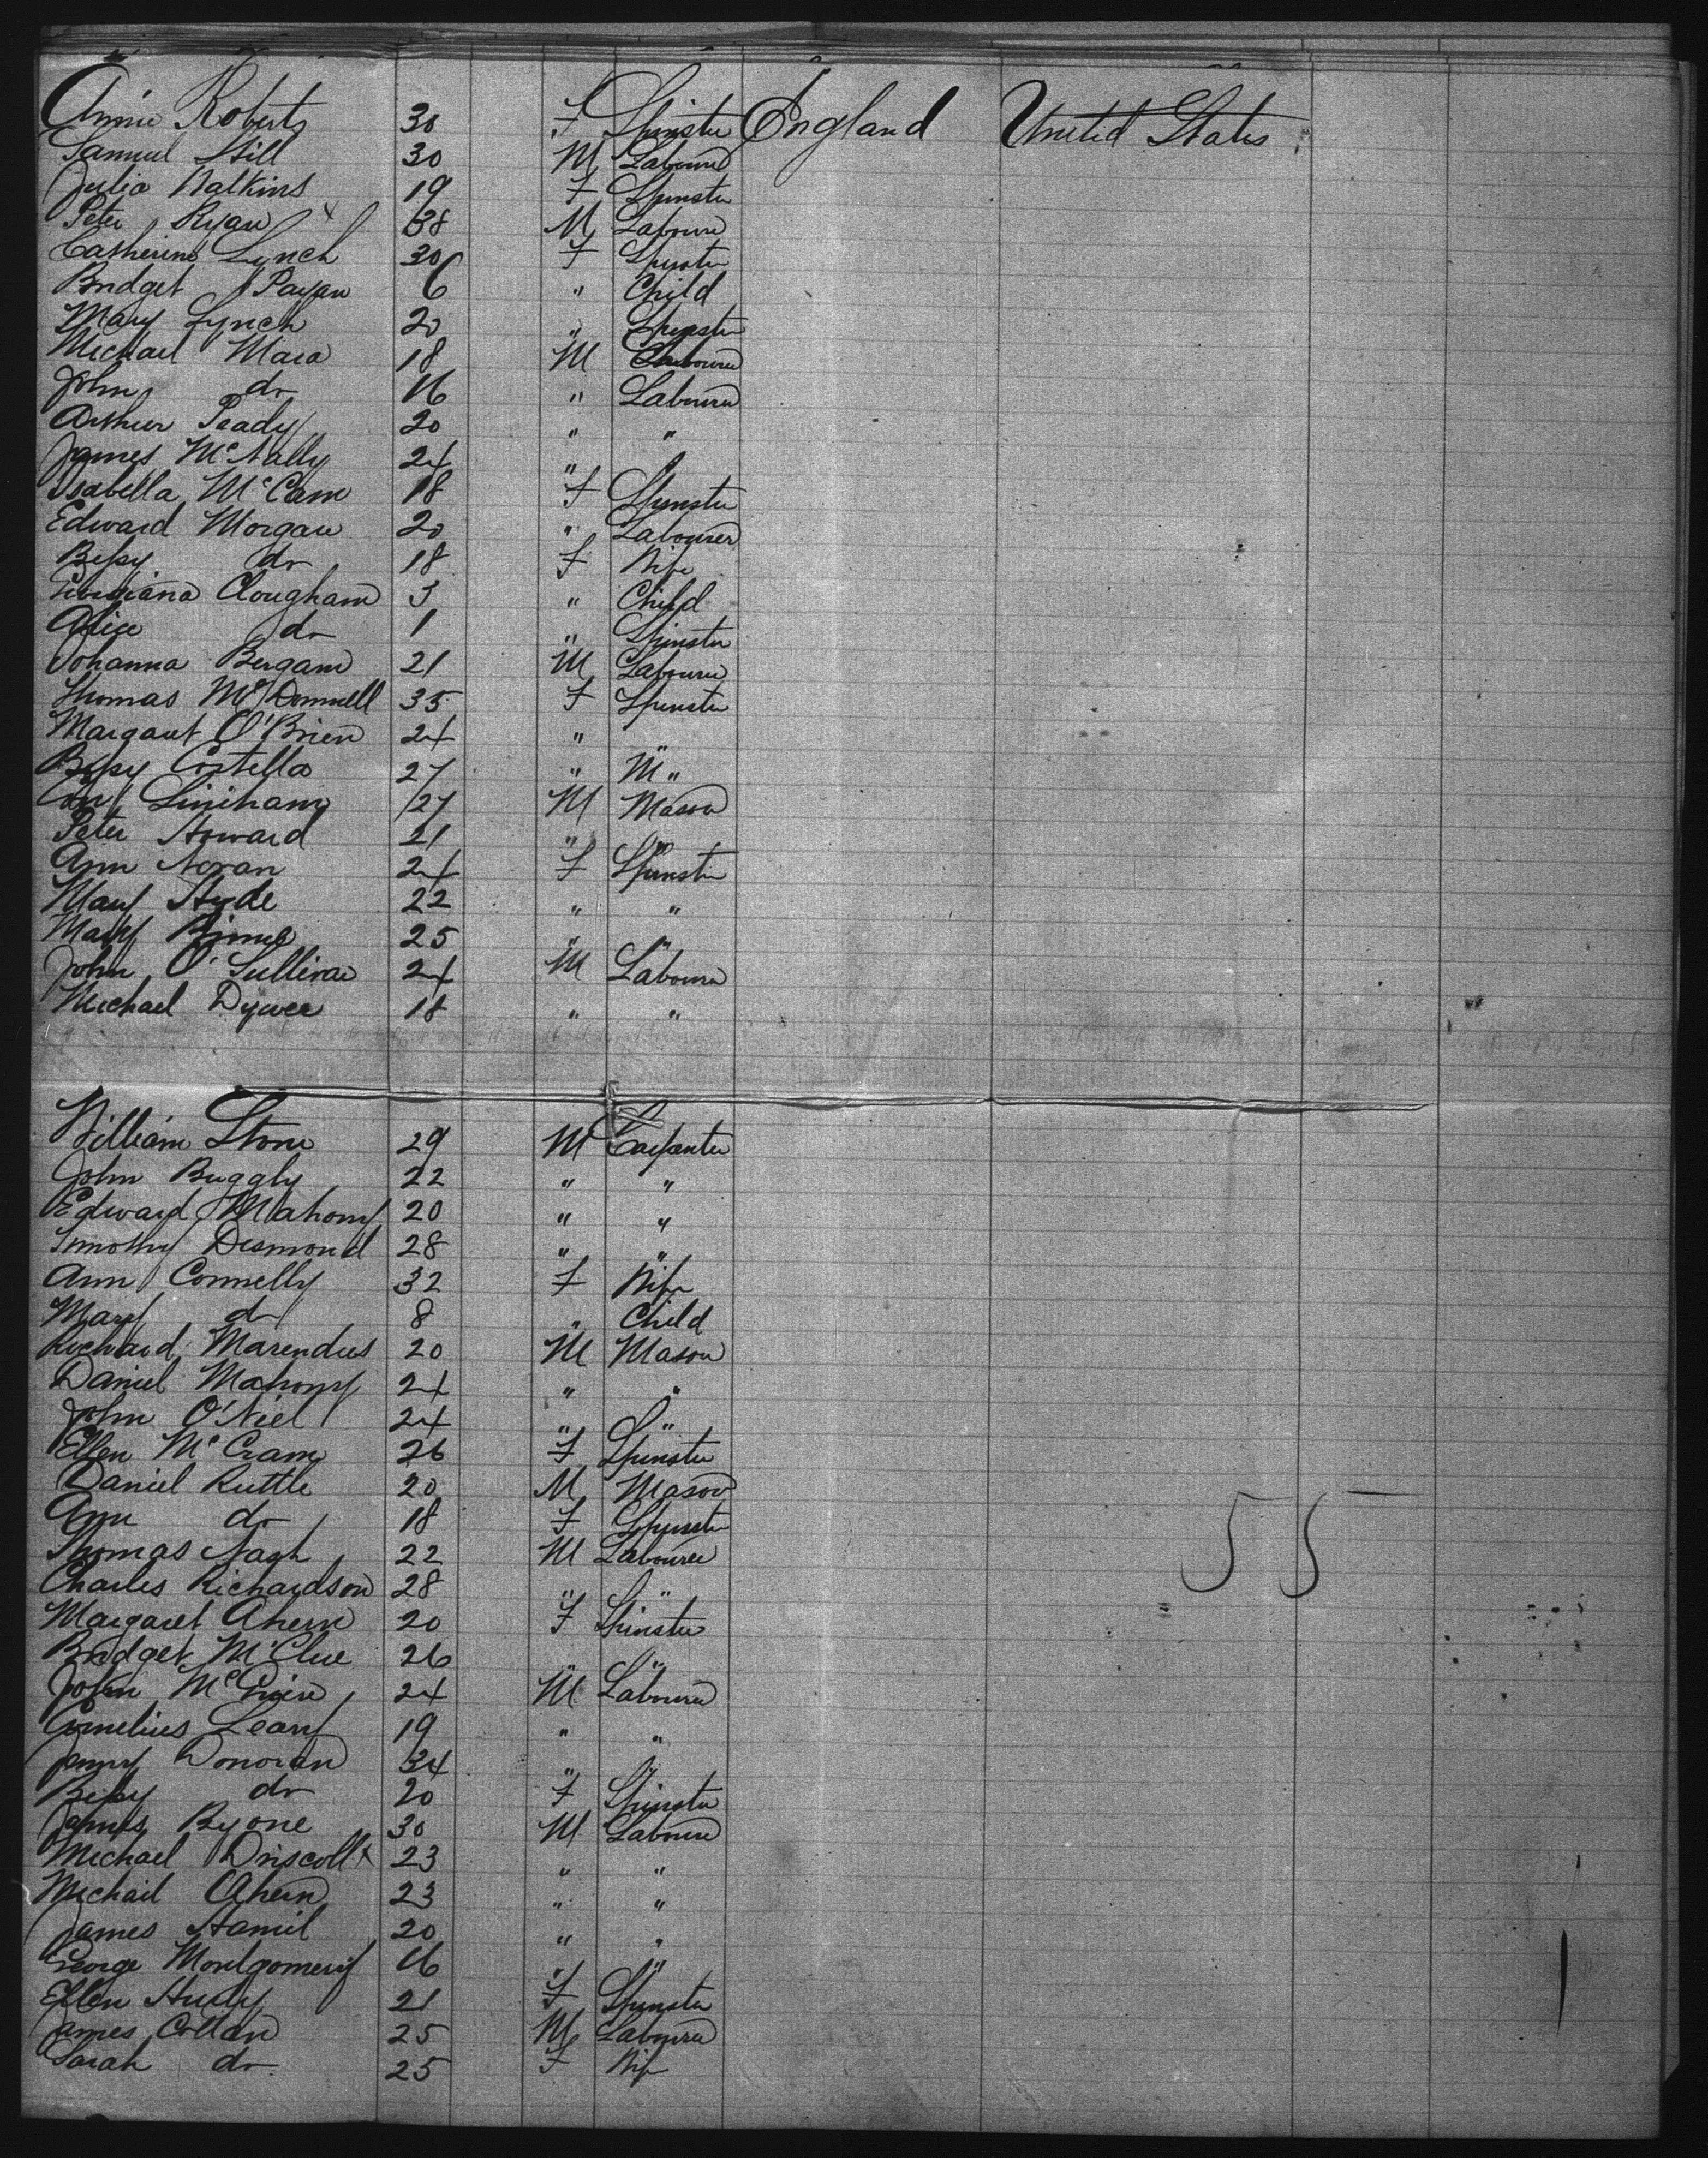 Annie Roberts 30 F Spinster England United States
Samuel Hill 30 M Labourer
Julia Watkins 19 F Spinster
Peter Ryan x 38 M Labourer
Catherine Lynch 30 F Spinster
Bridget 6 " Child
Mary Lynch 20 " Spinster
Michael Mara 18 M Labourer
John do 16 " Labourer
Arthur Peady 20 " "
James McNally 24 " "
Isabella McCann 18 F Spinster
Edward Morgan 20 " Labourer
Bessy do 18 F Wife
Clougham 3 " Child
Alice do 1 " Spinster
Johanna Bergam 21 M Labourer
Thomas McDonnell 35 F Spinster
Margaret O'Brien 24 "
Bessy Costello 27 " M "
Con Liniham 27 M Mason
Peter Howard 21 " "
Ann Noran 24 F Spinster
Mary Hyde 22 " "
Mary 25 " "
John O'Sullivan 24 M Labourer
Michael Dywer 18 " "
William Stone 29 M Carpenter
John Buggly 22 " "
Edward Mahony 20 " "
Timothy Desmond 28 " "
Ann Connelly 32 F Wife
Mary do 8 " Child
Richard Marendus 20 M Mason
Daniel Mahony 24 " "
John O'Niel 24 " "
Ellen McCram 26 F Spinster
Daniel Ruttle 20 M Mason
Ann do 18 F Spinster
Thomas Nagh 22 M Labourer
Charles Richardson 28 " "
Margaret Ahern 20 F Spinster
Bridget McClue 26 " "
John McGuire 24 M Labourer
Cornelius Leary 19 " "
Donovan 34 " "
Bessy do 20 F Spinster
James Byone 30 M Labourer
Michael Driscoll x 23 " "
Michail Ahern 23 " "
James Hamil 20 " "
George Montgomery 16 " "
Ellen Hudy 21 F Spinster
James Collan 25 M Labourer
Sarah do 25 F Wife
55